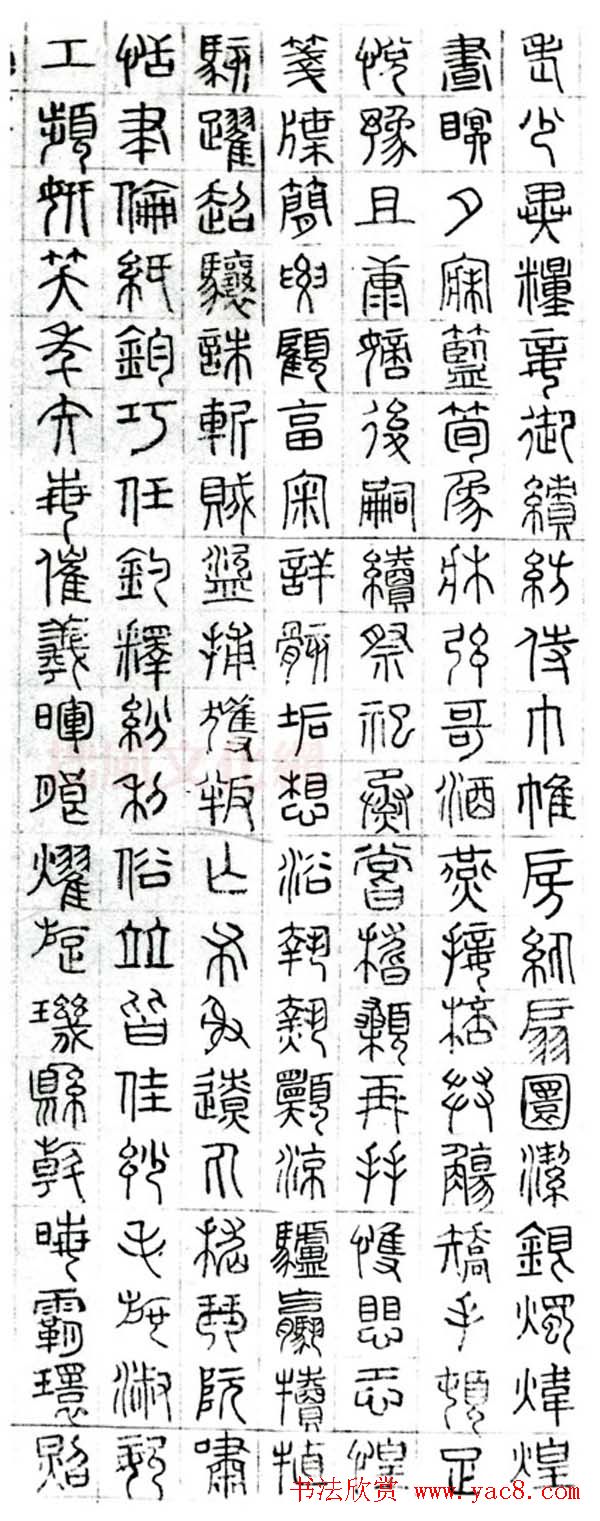 老少異糧妾御績紡侍巾帷房紈扇圓潔銀燭煒煌
晝瞑夕寐藍筍象牀弦哥酒燕接桮舉觴矯手頓足
悅豫且康嫡後嗣續祭祀蒸嘗稽顙再拜愯懼恐惶
箋牒簡要顧畣審詳骸垢想浴執熱願涼驢驘犢特
駭躍超驤誅斬賊盜捕獲叛亡布射遼丸嵇琴阮嘯
恬筆倫紙鈞巧任釣釋紛利俗並皆佳妙毛施淑姿
工顰妍笑年矢每催羲暉朗耀旋璣縣斡晦霸環照
书法欣赏 www.yac8.com